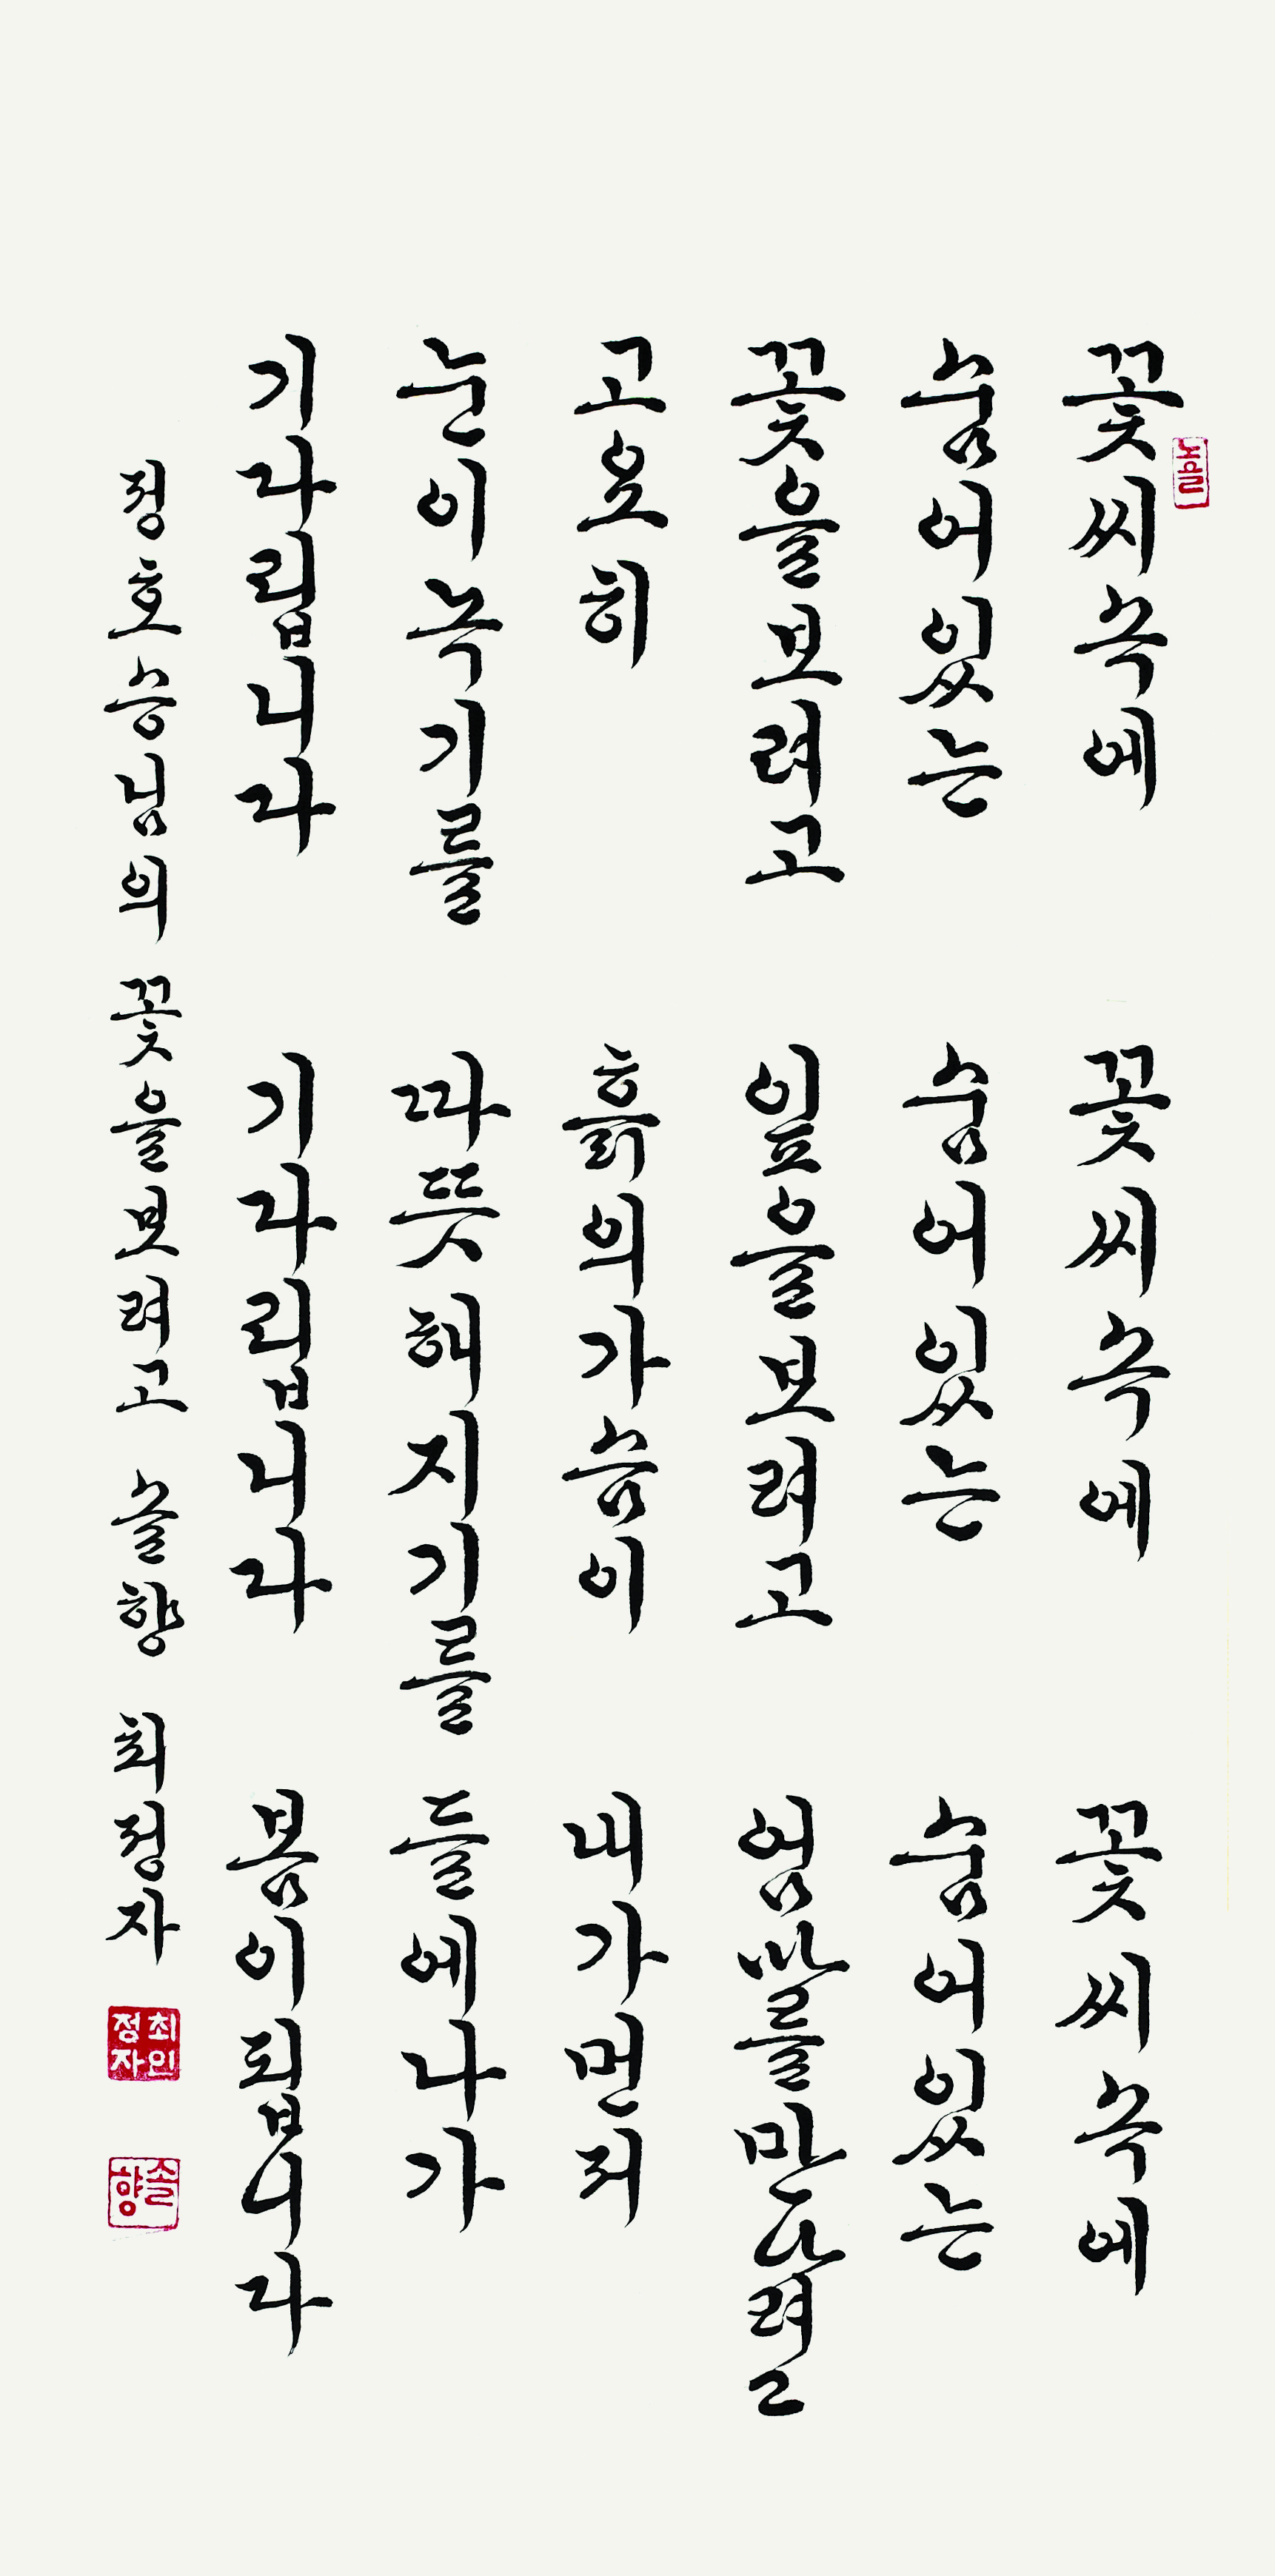 꽃씨속에
숨어있는
꽃을보려고
고요히
눈이녹기를
기다립니다
꽃씨속에
숨어있는
잎을보려고
흙의가슴이
따뜻해지기를
기다립니다
꽃씨속에
숨어있는
엄마를만나려고
내가먼저
들에나가
봄이됩니다
정호승님의 꽃을보려고 솔향 최정자
최인
정자
솔향